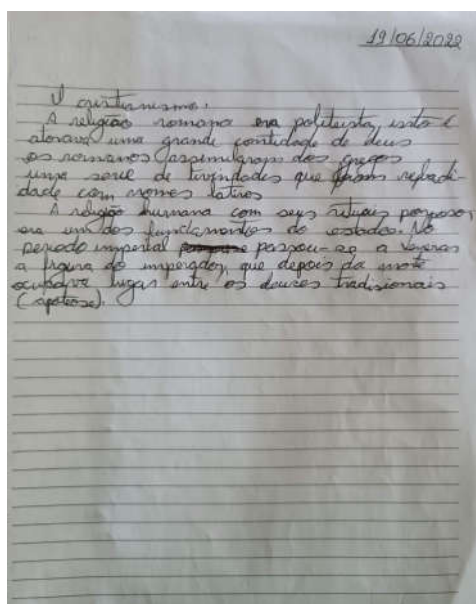 19/06/2022
O cristianismo.
A religião romana era politeista, isto é
adorava uma grande contidade de deus
os romanos assimilaram dos gregos
uma serie de divindades que foram
dade com nomes latinos
A religião humana com seus rituais
era um dos fundamentos do estado. No
periodo imperial passou-se a
a figura do imperador, que depois da morte
ocupava lugar entre os deuses tradisionais
(apoteose).